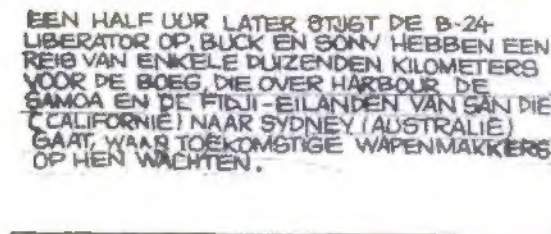 EEN HALF UUR LATER STIJGT DE B-24-
LIBERATOR OP. BUCK EN SONNY HEBBEN EEN
REIS VAN ENKELE DUIZENDEN KILOMETERS
VOOR DE BOEG, DIE OVER HARBOUR, DE
SAMOA EN DE FIDJI-EILANDEN VAN SAN DIE
(CALIFORNIË) NAAR SYDNEY (AUSTRALIË)
GAAT, WAAR TOEKOMSTIGE WAPENMAKKERS
OP HEN WACHTEN.